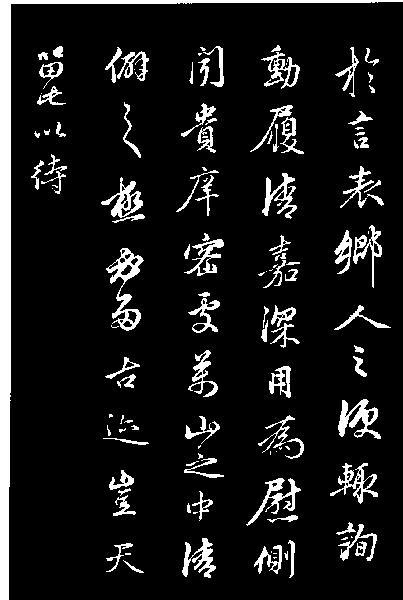 於言表鄉人之便輒詢
動履清嘉深用為慰側
聞貴庠密處萬山之中清
僻之極必多古迹豈天
留此以待